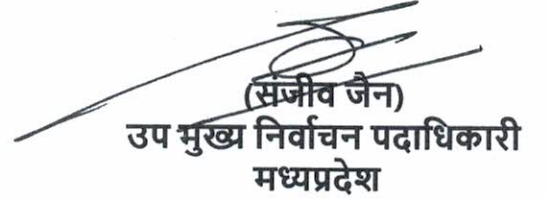 (संजीव जैन)
उप मुख्य निर्वाचन पदाधिकारी
मध्यप्रदेश